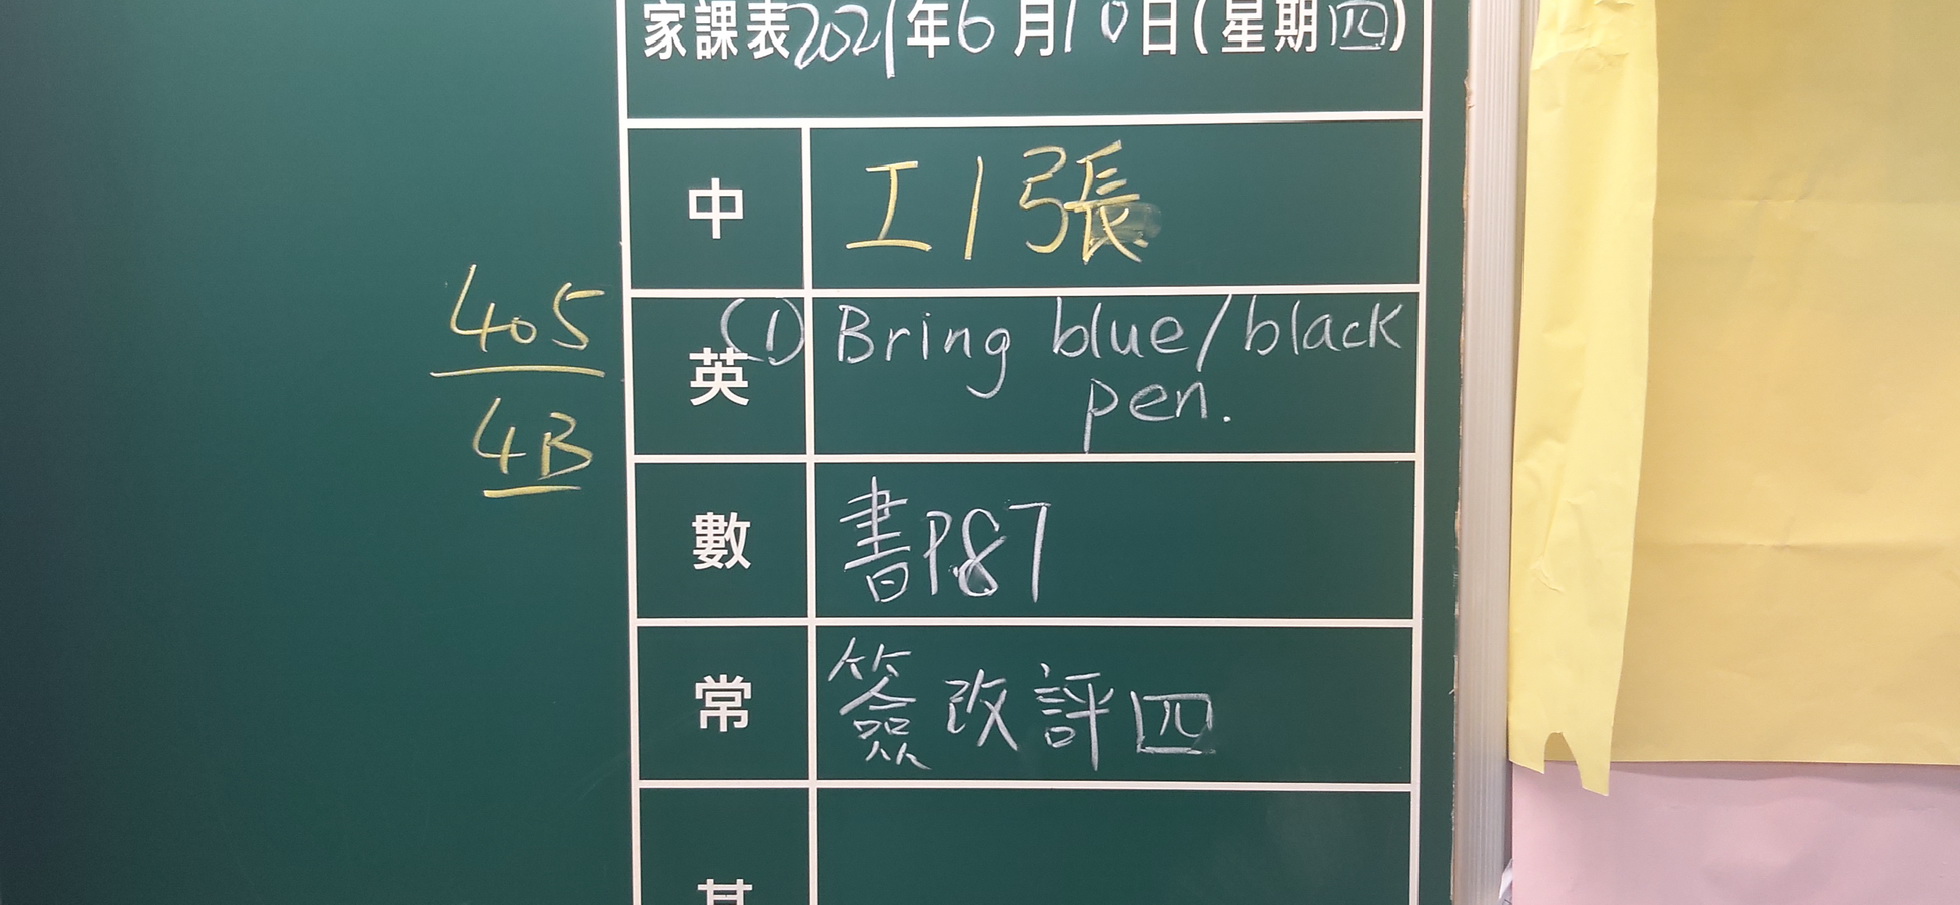 家課表2021年6月10日(星期四)
中 工1張
405
英 (1) Bring blue/black
pen.
4B
數 書P.87
常 簽改評四